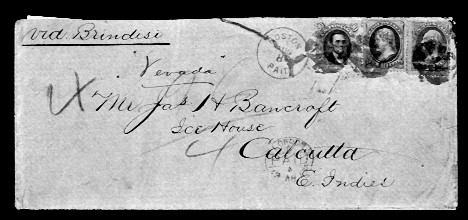 via Brindisi
BOSTON
8
PAID
"Nevada"
Mr Jas H Bancroft
Ice House
Calcutta
E. Indies